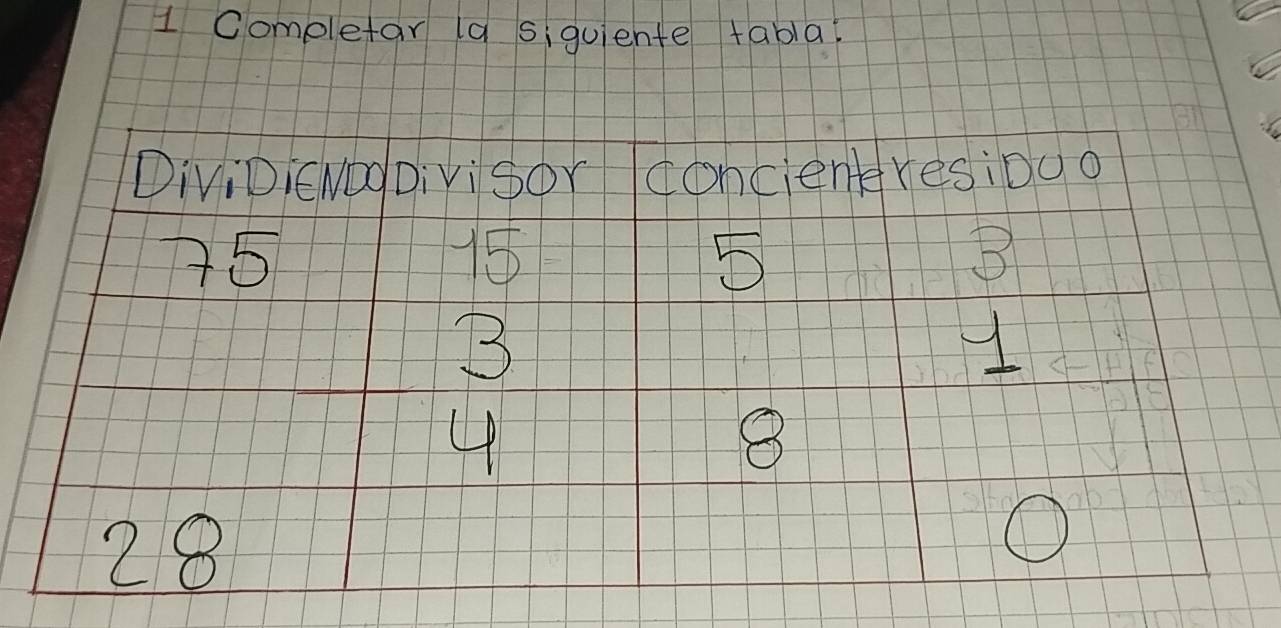 1 Completar la siguiente tabla:
DiViDiENDO DiViSOr conciente resiDuo
75 15 5 3
3 1
4 8
28 0